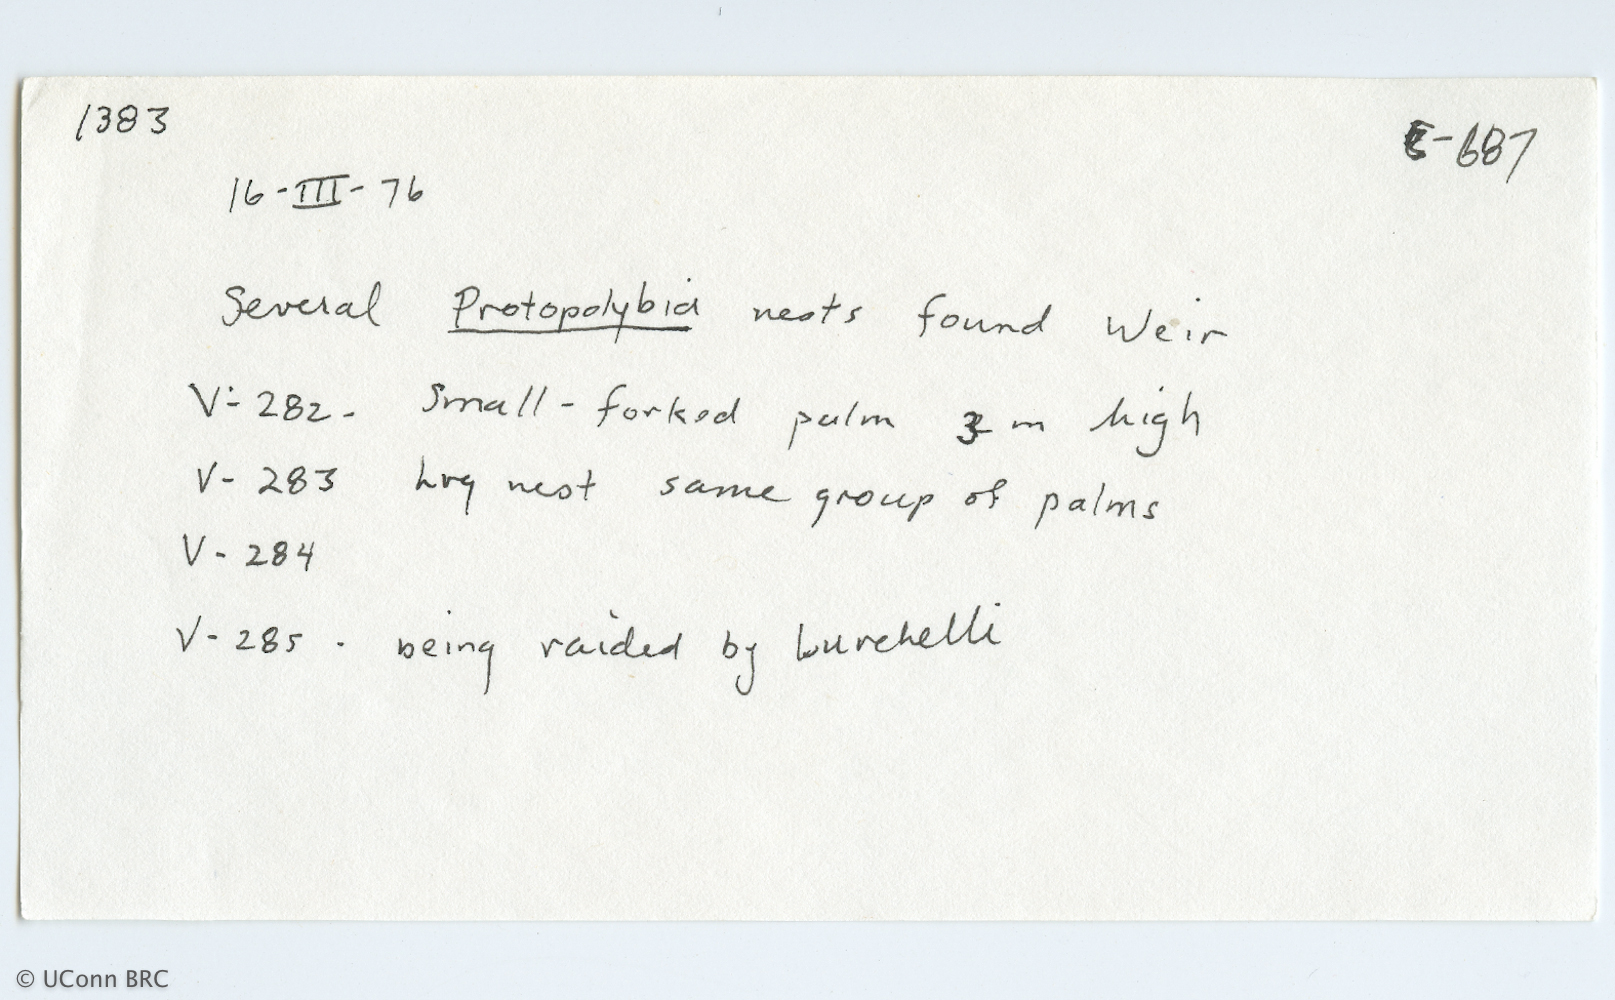 1383
E-687
16-III-76
Several Protopolybia nests found Weir
V-282. Small-forked palm 3 m high
V- 283 lrg nest same group of palms
V- 284
V-285. being raided by burchelli
© UConn BRC